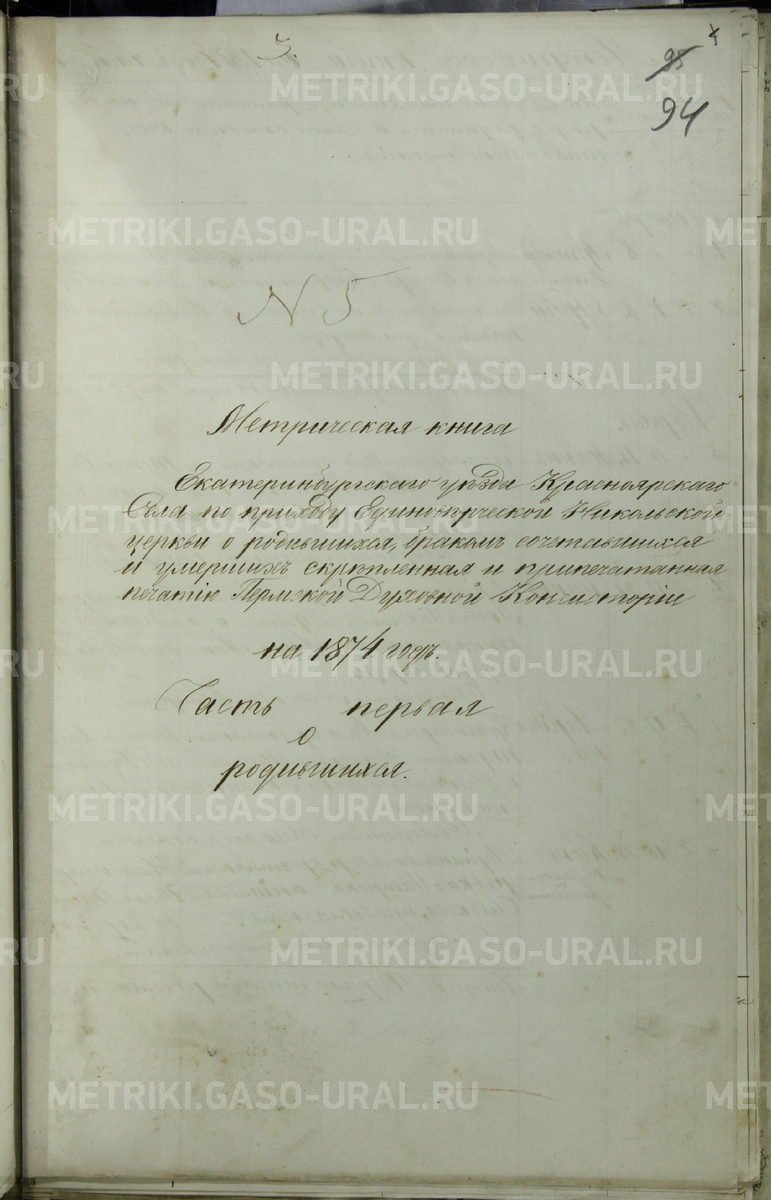 3.
94
N 5
Метрическая книга
Екатеринбургскаго уѣзда Красноярскаго
Села по приходу Единоверческой Никольской
церкви о родившихся, бракомъ сочетавшихся
и умершихъ скрѣпленная и припечатанная
печатію Пермской Духовной Консисторіи
на 1874 годъ.
Часть первая
о
родившихся.
METRIKI.GASO-URAL.RU